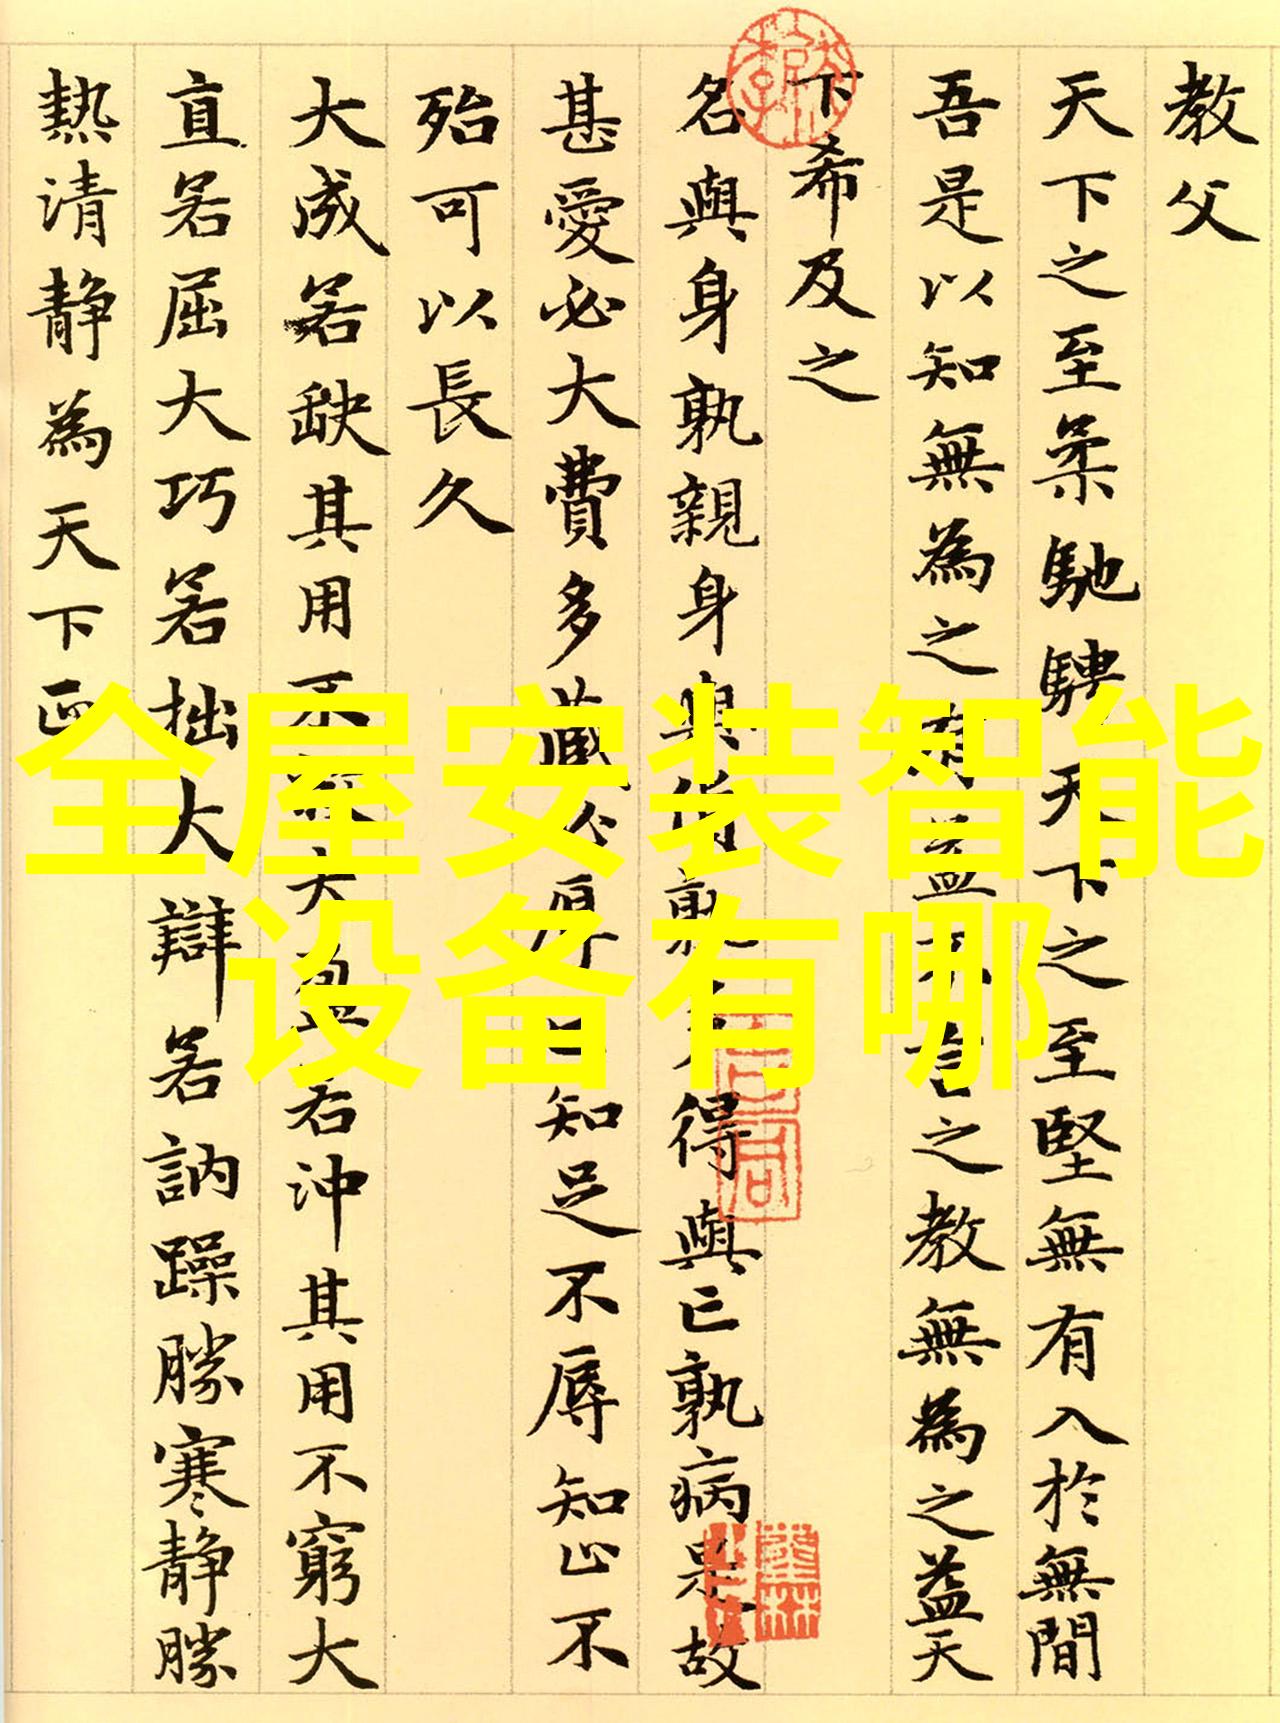 教父
天下之至柔馳騁天下之至堅無有入於無間
吾是以知無為之有益不言之教無為之益天
下希及之
名與身孰親身與貨孰多得與亡孰病是故
甚愛必大費多藏必厚亡知足不辱知止不
殆可以長久
大成若缺其用不大盈若沖其用不窮大
直若屈大巧若拙大辯若訥躁勝寒静勝
熱清静為天下正
全屋安装智能
设备有哪